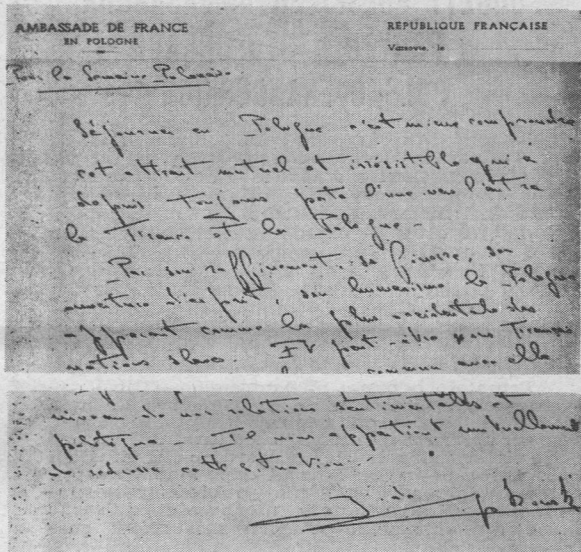 AMBASSADE DE FRANCE
EN POLOGNE
RÉPUBLIQUE FRANÇAISE
Varsovie, le
Pour la Semaine Polonaise
Séjourner en Pologne c'est mieux comprendre
cet attrait mutuel et irrésistible qui a
depuis toujours porté l'une vers l'autre
la France et la Pologne -
Par son raffinement, sa finesse, son
ouverture d'esprit, son humanisme la Pologne
apparait comme la plus occidentale des
nations slaves. Et peut-être nous Français
commun avec elle
niveau de nos relations sentimentales et
politique - Il nous appartient mutuellement
de redresser cette situation.